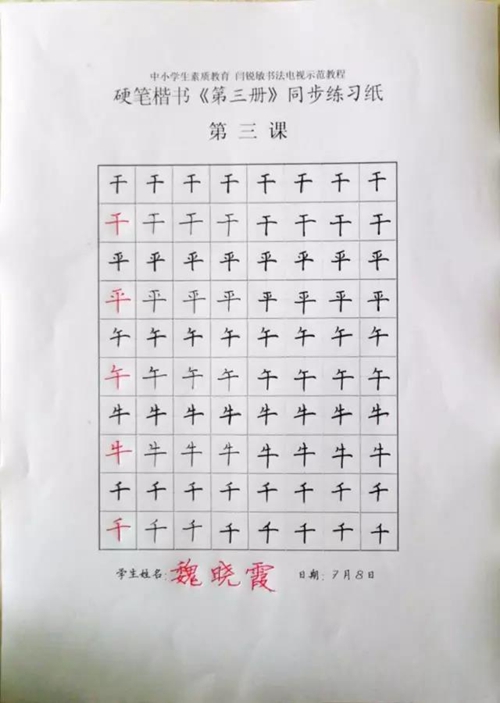 中小学生素质教育 闫锐敏书法电视示范教程
硬笔楷书《第三册》同步练习纸
第三课
干干干干干干干干
干干干干干干干干
平平平平平平平平
平平平平平平平平
午午午午午午午午
午午午午午午午午
牛牛牛牛牛牛牛牛
牛牛牛牛牛牛牛牛
千千千千千千千千
千千千千千千千千
学生姓名:魏晓霞 日期:7月8日